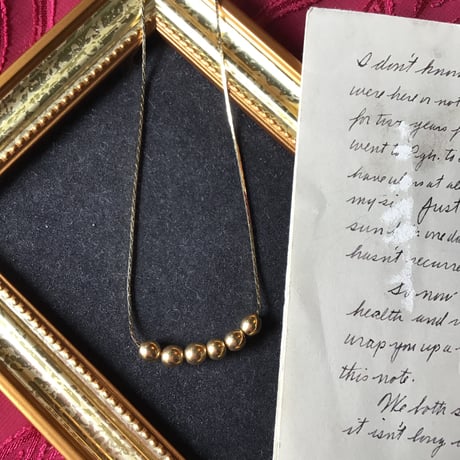 I don't know
were here or not
for two years
went to Pgh. to
have
at al
my si
Just
sun
one da
hasn't recurre
So now
health and
wrap you up a
this note.
We both s
it isn't long